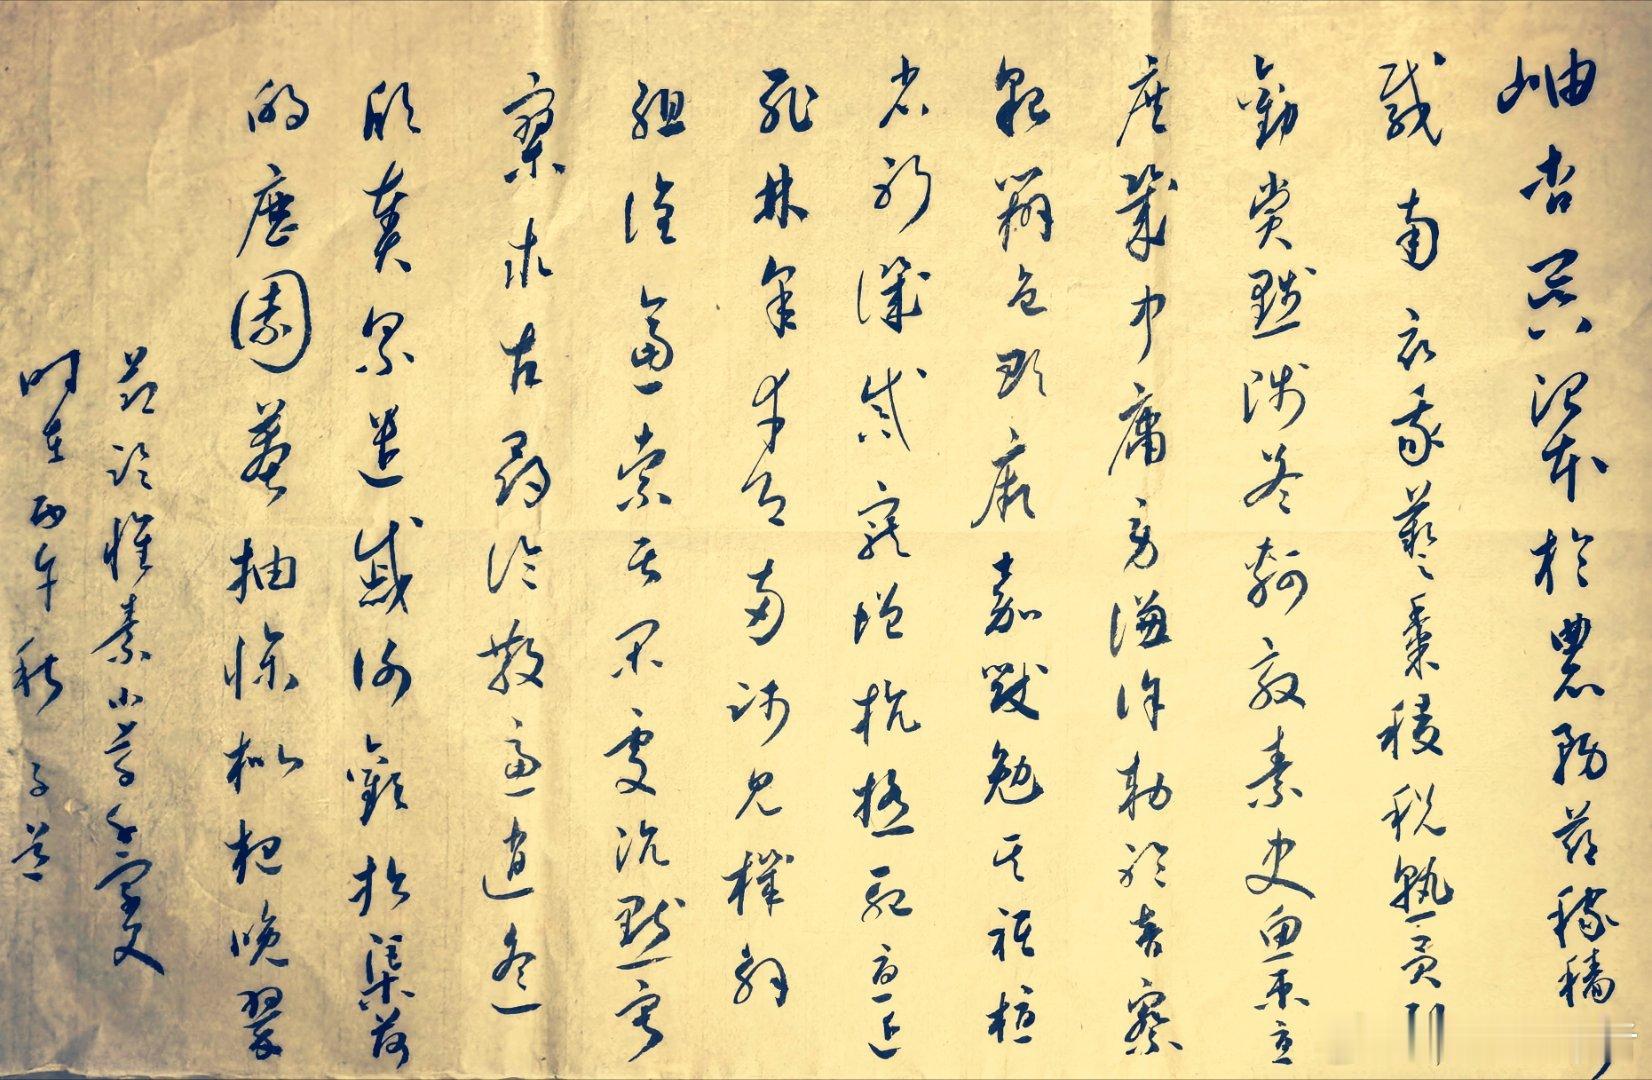 岫杳冥治本於農務茲稼穡
載南畝我藝黍稷稅熟貢
勸賞黜陟孟軻敦素史魚秉直
庶幾中庸勞謙謹勅聆音察
貌辨色貽厥嘉猷勉其祗植
省躬譏誡寵增抗極殆辱近
恥林皋幸即兩疏見機解
組誰逼索居閒處沉默寂
寥求古尋論散慮逍遙
欣奏累遣慼謝歡招渠荷
的歷園莽抽條枇杷晚翠
節臨懷素小草千字文
時在丙午秋子